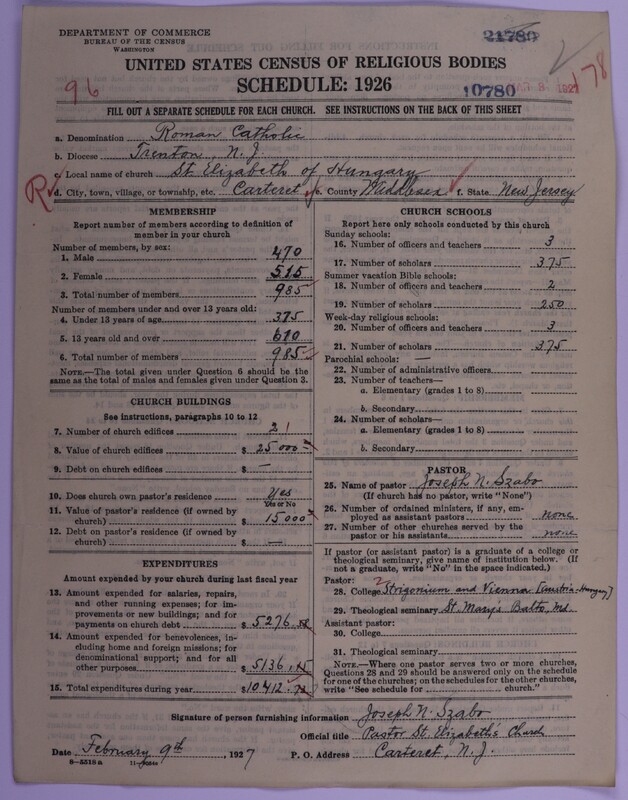 DEPARTMENT OF COMMERCE
BUREAU OF THE CENSUS
WASHINGTON
21780
UNITED STATES CENSUS OF RELIGIOUS BODIES
SCHEDULE: 1926
96
10780
178
FILL OUT A SEPARATE SCHEDULE FOR EACH CHURCH. SEE INSTRUCTIONS ON THE BACK OF THIS SHEET
a. Denomination Roman Catholic
b. Diocese Trenton N. J.
c. Local name of church St. Elizabeth of Hungary
R d. City, town, village, or township, etc. Carteret e. County Middlesex f. State New Jersey
MEMBERSHIP
Report number of members according to definition of
member in your church
Number of members, by sex:
1. Male 470
2. Female 515
3. Total number of members 985
Number of members under and over 13 years old:
4. Under 13 years of age 375
5. 13 years old and over 610
6. Total number of members 985
NOTE.—The total given under Question 6 should be the
same as the total of males and females given under Question 3.
CHURCH BUILDINGS
See instructions, paragraphs 10 to 12
7. Number of church edifices 2 1
8. Value of church edifices $ 25000
9. Debt on church edifices $ —
10. Does church own pastor's residence Yes
Yes or No
11. Value of pastor's residence (if owned by
church) $ 15000
12. Debt on pastor's residence (if owned by
church) $ —
EXPENDITURES
Amount expended by your church during last fiscal year
13. Amount expended for salaries, repairs,
and other running expenses; for im-
provements or new buildings; and for
payments on church debt $ 5276
14. Amount expended for benevolences, in-
cluding home and foreign missions; for
denominational support; and for all
other purposes $ 5136.15
15. Total expenditures during year $ 10412
CHURCH SCHOOLS
Report here only schools conducted by this church
Sunday schools:
16. Number of officers and teachers 3
17. Number of scholars 375
Summer vacation Bible schools:
18. Number of officers and teachers 2
19. Number of scholars 250
Week-day religious schools:
20. Number of officers and teachers 3
21. Number of scholars 375
Parochial schools: —
22. Number of administrative officers
23. Number of teachers—
a. Elementary (grades 1 to 8)
b. Secondary
24. Number of scholars—
a. Elementary (grades 1 to 8)
b. Secondary
PASTOR
25. Name of pastor Joseph N. Szabo
(If church has no pastor, write "None")
26. Number of ordained ministers, if any, em-
ployed as assistant pastors none
27. Number of other churches served by the
pastor or his assistants none
If pastor (or assistant pastor) is a graduate of a college or
theological seminary, give name of institution below. (If
not a graduate, write "No" in the space indicated.)
Pastor:
28. College Strigonium and Vienna
29. Theological seminary St. Mary's Balto, Md.
Assistant pastor:
30. College
31. Theological seminary
NOTE.—Where one pastor serves two or more churches,
Questions 28 and 29 should be answered only on the schedule
for one of the churches; on the schedules for the other churches,
write "See schedule for church."
Signature of person furnishing information Joseph N. Szabo
Official title Pastor St. Elizabeth's Church
Date February 9th, 1927 P. O. Address Carteret, N. J.
8-5518a